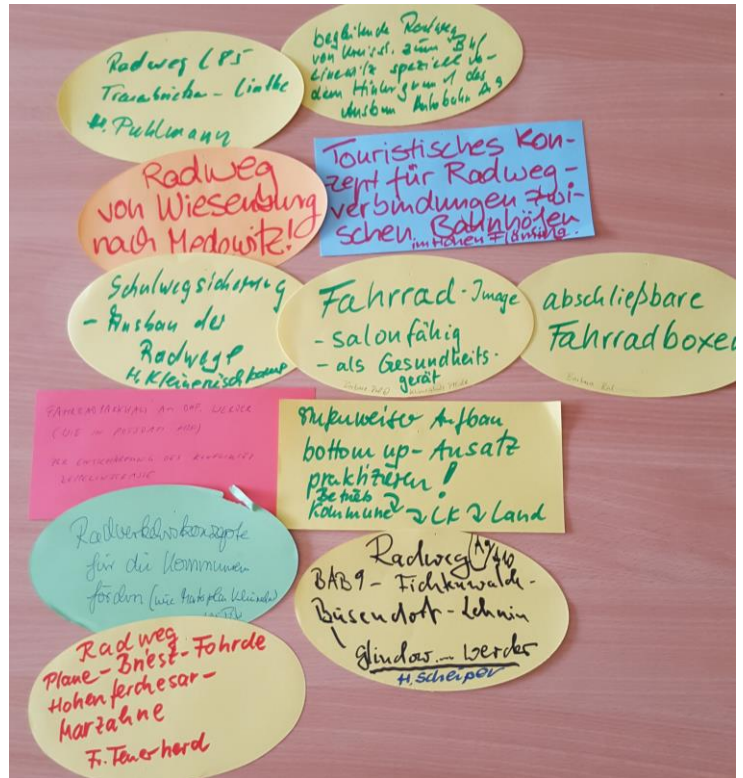 Radweg L85
Treuenbrietzen - Linthe
H. Puhlmann
begleitende Radweg
zum Bhf
speziell vo-
dem Hintergrund des
Ausbau Autobahn A9
Radweg
von Wiesenburg
nach Medewitz!
Touristisches Kon-
zept für Radweg-
verbindungen zwi-
schen Bahnhöfen
im Hohen Fläming.
Schulwegsicherung
- Ausbau der
Radwege
H.
Fahrrad-Image
- salonfähig
- als Gesundheits-
gerät
abschließbare
Fahrradboxen
FAHRRADPARKHAUS AM BHF. WERDER
(WIE IN POTSDAM HBF)
stufenweiser Aufbau
bottom up-Ansatz
praktizieren!
Betrieb
Kommune LK Land
Radverkehrskonzepte
für die Kommunen
fördern (wie
Radweg A9
BAB9 - Fichtenwalde -
Busendorf - Lehnin
Glindow - Werder
H. Scheiper
Radweg
Plane - Briest - Fohrde
Hohenferchesar -
Marzahne
Fr. Feuerherd